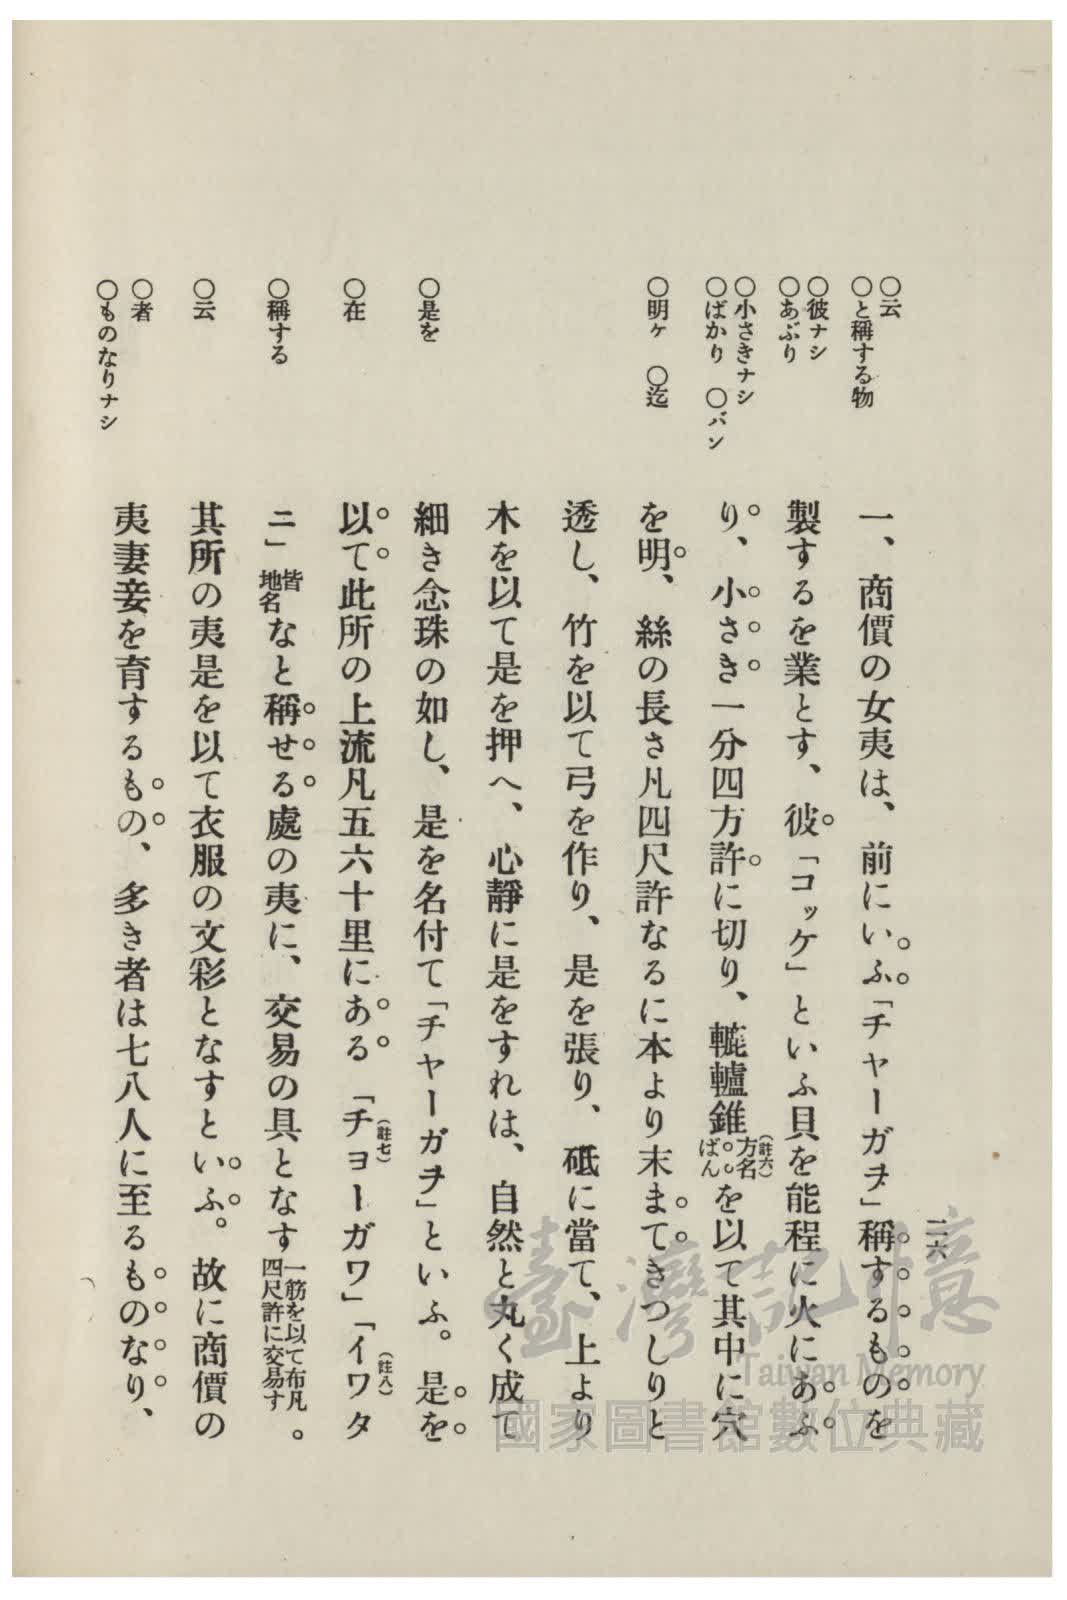 二六
○云
○と稱する物
○彼ナシ
○あぶり
○小さきナシ
○ばかり　○バン
○明ヶ　○迄
○是を
○在
○稱する
○云
○者
○ものなりナシ
一、商價の女夷は、前にいふ「チャーガヲ」稱するものを
製するを業とす、彼「コッケ」といふ貝を能程に火にあぶ
り、小さき一分四方許に切り、轆轤錐(註六)方名ばんを以て其中に穴
を明、絲の長さ凡四尺許なるに本より末まてきつしりと
透し、竹を以て弓を作り、是を張り、砥に當て、上より
木を以て是を押へ、心靜に是をすれは、自然と丸く成て
細き念珠の如し、是を名付て「チャーガヲ」といふ。是を
以て此所の上流凡五六十里にある「チョーガワ」(註七)「イワタ(註八)
ニ」皆地名なと稱せる處の夷に、交易の具となす一筋を以て布凡四尺許に交易す。
其所の夷是を以て衣服の文彩となすといふ。故に商價の
夷妻妾を育するもの、多き者は七八人に至るものなり、
臺灣記憶
Taiwan Memory
國家圖書館數位典藏